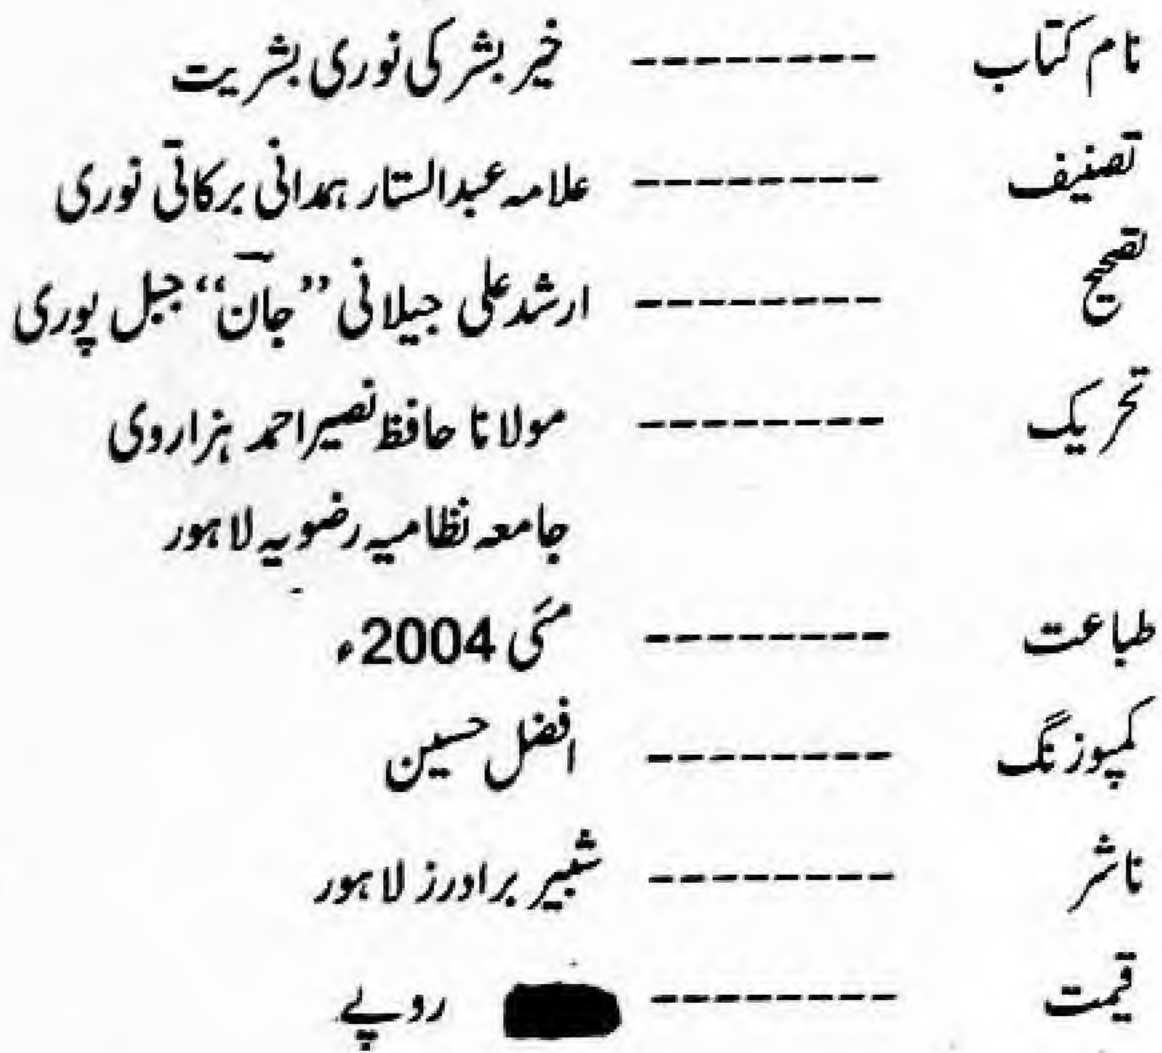 نام کتاب -------- خیر بشر کی نوری بشریت
تصنیف -------- علامہ عبدالستار ہمدانی برکاتی نوری
تصحیح -------- ارشد علی جیلانی ”جان“ جبل پوری
تحریک -------- مولانا حافظ نصیر احمد ہزاروی
جامعہ نظامیہ رضویہ لاہور
طباعت -------- مئی 2004ء
کمپوزنگ -------- افضل حسین
ناشر -------- شبیر برادرز لاہور
قیمت -------- روپے